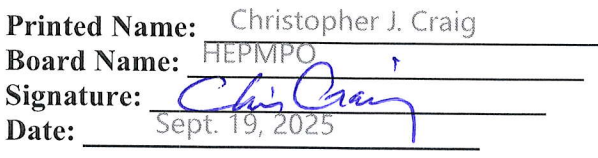 Printed Name: Christopher J. Craig
Board Name: HEPMPO
Signature: Chris Craig
Date: Sept. 19, 2025